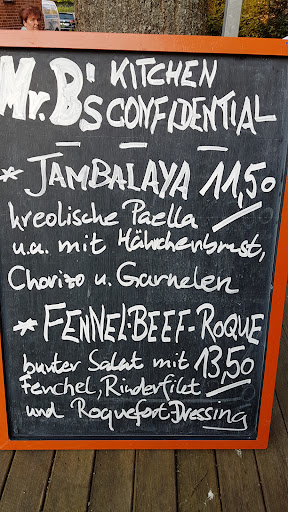 Mr. B's KITCHEN
CONFIDENTIAL
* JAMBALAYA 11,50
kreolische Paella
u.a. mit Hähnchenbrust,
Chorizo u. Garnelen
* FENNEL-BEEF-ROQUE
bunter Salat mit 13,50
Fenchel, Rinderfilet
und Roquefort Dressing